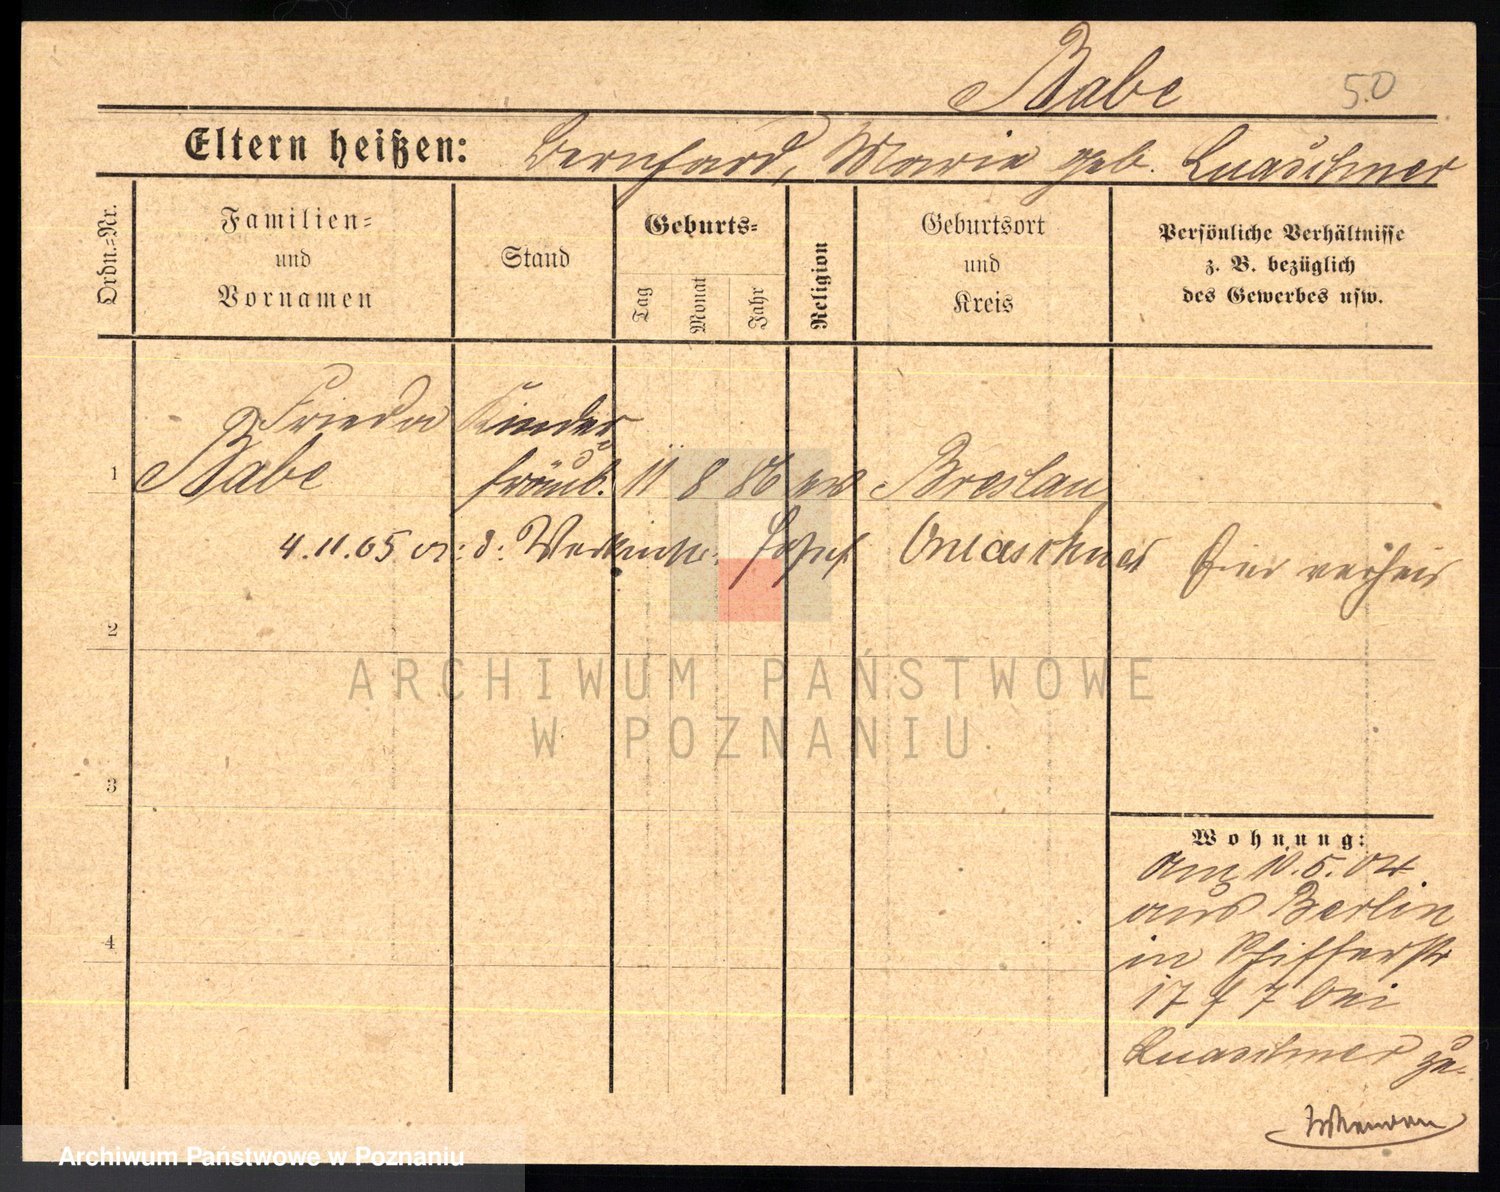 Babe
50
Eltern heißen: Bernhard, Marie geb. Quaschner
Ordn.-Nr.
Familien-
und
Vornamen
Stand
Geburts-
Tag
Monat
Jahr
Religion
Geburtsort
und
Kreis
Persönliche Verhältnisse
z. B. bezüglich
des Gewerbes usw.
Frieda Kinder
1 Babe fräul. 11 8 86 ev Breslau
4.11.05 d: Josef Quaschner hier
2
3
4
Wohnung:
am 10.5.04
aus Berlin
in
17 7 bei
Quaschner zu.
ARCHIWUM PAŃSTWOWE
W POZNANIU
Archiwum Państwowe w Poznaniu